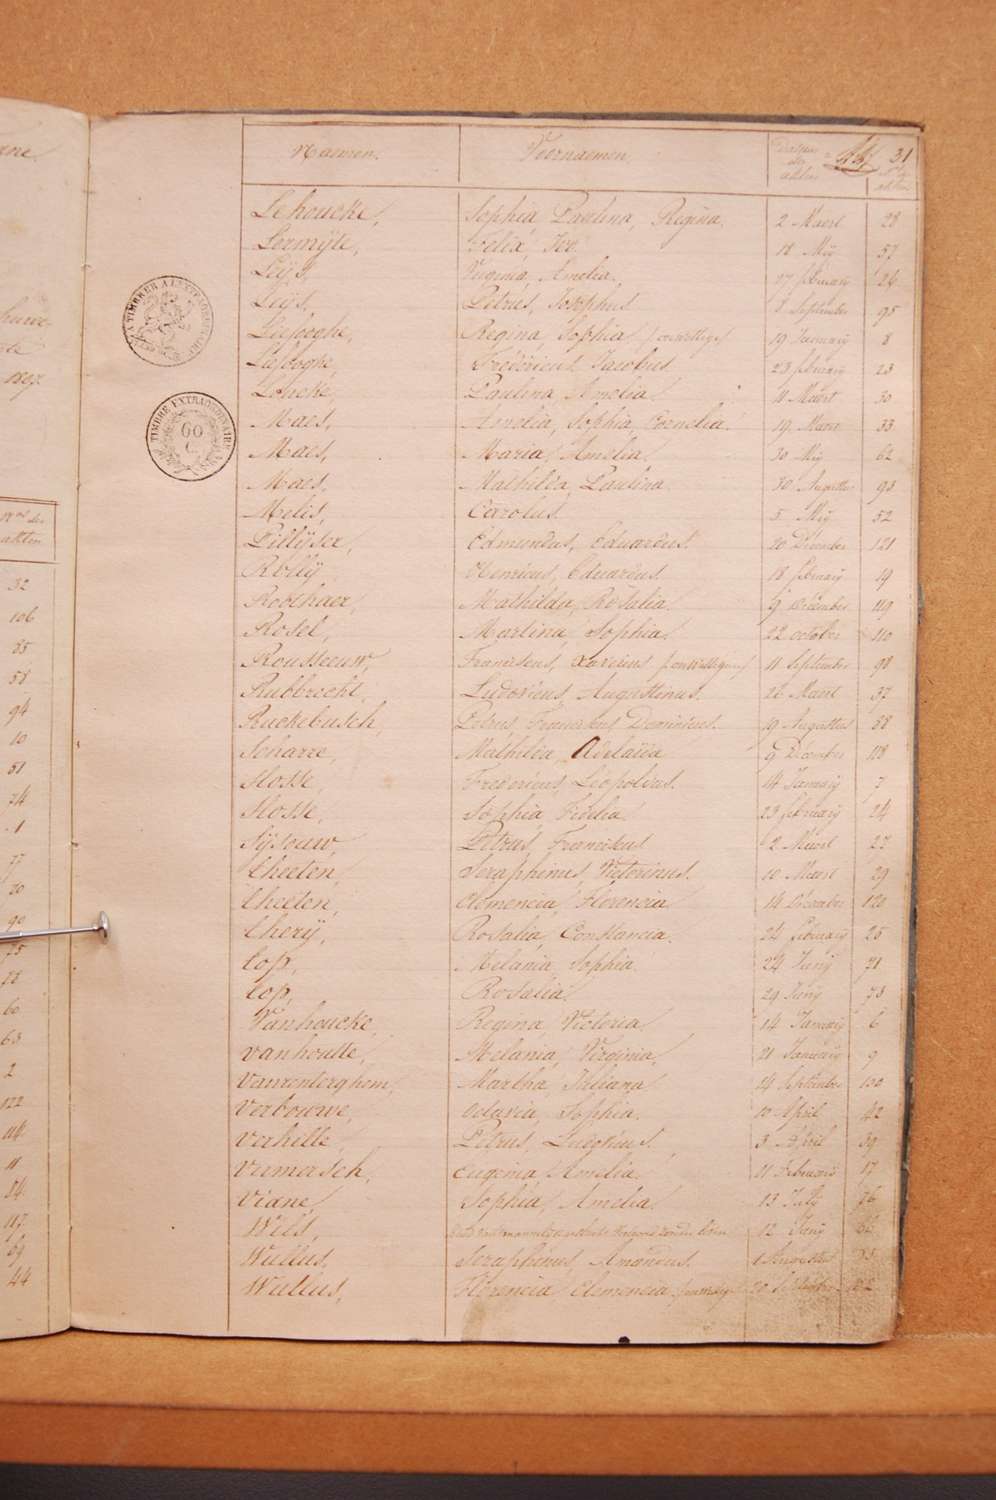 Naemen. Voornaemen Datums der akten 31 Nos der akten
Lehoucke, Sophia Paulina, Regina. 2 Maert 28
Lermÿte, Felix, Jor. 18 Mÿ 57
Leÿs, Virginia, Amelia. 17 february 26
Leÿs, Petrus, Josephus 8 September 95
Liefooghe, Regina, Sophia / onwettige / 19 January 8
Liefooghe, Fredericus, Jacobus. 23 february 23
Loncke, Paulina, Amelia. 11 Maert 30
Maes, Amelia, Sophia, Cornelia. 19 Maert 33
Maes, Maria, Amelia. 30 Mÿ 62
Maes, Mathilda, Paulina 30 Augustus 93
Melis, Carolus. 5 Mÿ 52
Pillÿser, Edmundus, Eduardus. 20 December 121
Rollÿ Henricus, Eduardus. 18 february 19
Roothaer, Mathilda, Rosalia. 9 December 119
Rosel, Martina, Sophia. 22 october 110
Rousseeuw, Franciscus, Xaverius / onwettig / 11 September 98
Rubbrecht, Ludovicus, Augustinus. 26 Maert 37
Ruckebusch, Petrus, Franciscus Dominicus. 19 Augustus 88
Scharre, Mathilda, Adelaida 9 December 118
Slosse, Fredericus, Leopoldus. 14 January 7
Slosse, Sophia, Fidelia. 23 february 24
Sÿsouw Petrus, Franciskus 2 Maert 27
Theeten, Seraphinus, Victorinus. 10 Maert 29
Theeten, Clemencia, Florencia. 14 December 120
Therÿ, Rosalia, Constancia. 24 february 25
Top, Melania, Sophia. 24 Junÿ 71
Top, Rosalia. 29 Junÿ 73
Vanhoucke, Regina, Victoria 14 January 6
Vanhoutte, Melania, Virginia, 21 January 9
Vanrenterghem, Martha, Juliana 14 September 100
Verbouwe, Octavia, Sophia. 10 April 42
Verhille, Petrus, Eugenius. 3 April 39
Vermersch, Eugenia, Amelia. 11 February 17
Viane, Sophia, Amelia. 13 July 76
Wils, 12 Junÿ 66
Wullus, Seraphinus, Amandus. 1 Augustus
Wullus, Florencia, Clemencia,
TIMBRE A L'EXTRAORDINAIRE
TIMBRE EXTRAORDINAIRE
60
C
1897.
Nos der
akten
32
106
85
58
94
10
51
74
1
77
20
90
75
78
60
63
2
122
114
11
84
117
69
44